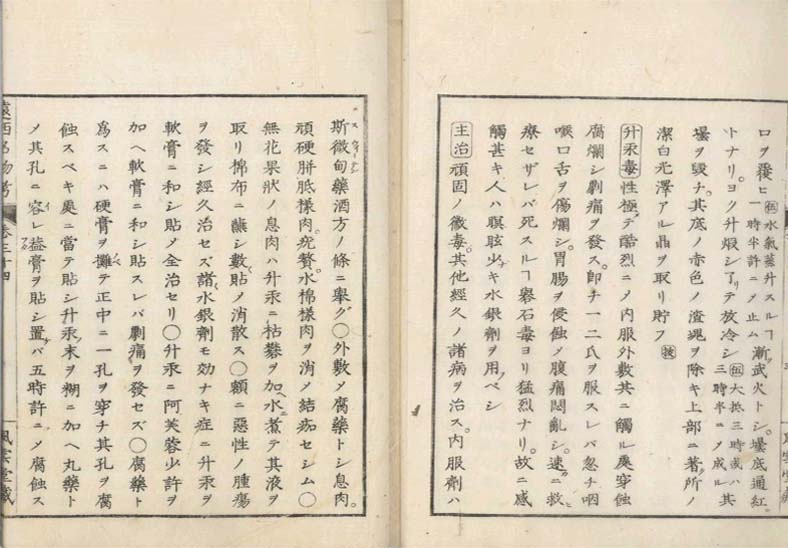 ロヲ覆ヒ伍水氣蒸升スルヿ一時半許ニメ止ム漸武火トシ壜底通紅
トナリヨク升煆シ了リテ放冷シ伍大抵三時或ハ三時半ニメ成ル其
壜ヲ毀チ其底ノ赤色ノ渣滓ヲ除キ上部ニ著所ノ
潔白光澤アル晶ヲ取リ貯フ
升汞毒 性極テ酷烈ニメ内服外敷共ニ觸ル處穿蝕
腐爛シ劇痛ヲ發ス。即チ一二氏ヲ服スレバ忽チ咽
喉口舌ヲ傷爛シ。胃腸ヲ侵蝕メ腹痛悶亂シ。速ニ救
療セザレバ死スルヿ礜石毒ヨリ猛烈ナリ。故ニ感
觸甚キ人ハ瞑眩少キ水銀劑ヲ用ベシ
主治 頑固ノ黴毒。其他經久ノ諸病ヲ治ス。内服劑ハ
斯微甸藥酒方ノ條ニ擧グ○外敷メ腐藥トシ息肉。
頑硬胼胝樣肉。疣贅。水棉樣肉ヲ消メ結痂セシム○
無花果狀ノ息肉ハ升汞ニ枯礬ヲ加ヘ水煮テ其液ヲ
取リ棉布ニ蘸シ數貼メ消散ス○額ニ惡性ノ腫瘍
ヲ發シ經久治セズ諸水銀劑モ効ナキ症ニ升汞ヲ
軟膏ニ和シ貼メ全治セリ○升汞ニ阿芙蓉少許ヲ
加ヘ軟膏ニ和シ貼スレバ劇痛ヲ發セズ○腐藥ト
爲スニハ硬膏ヲ攤テ正中ニ一孔ヲ穿チ其孔ヲ腐
蝕スベキ處ニ當テ貼シ升汞末ヲ糊ニ加ヘ丸藥ト
メ其孔ニ容レ蓋膏ヲ貼シ置ケバ五時許ニメ腐蝕ス
卷三十四
風雲堂藏